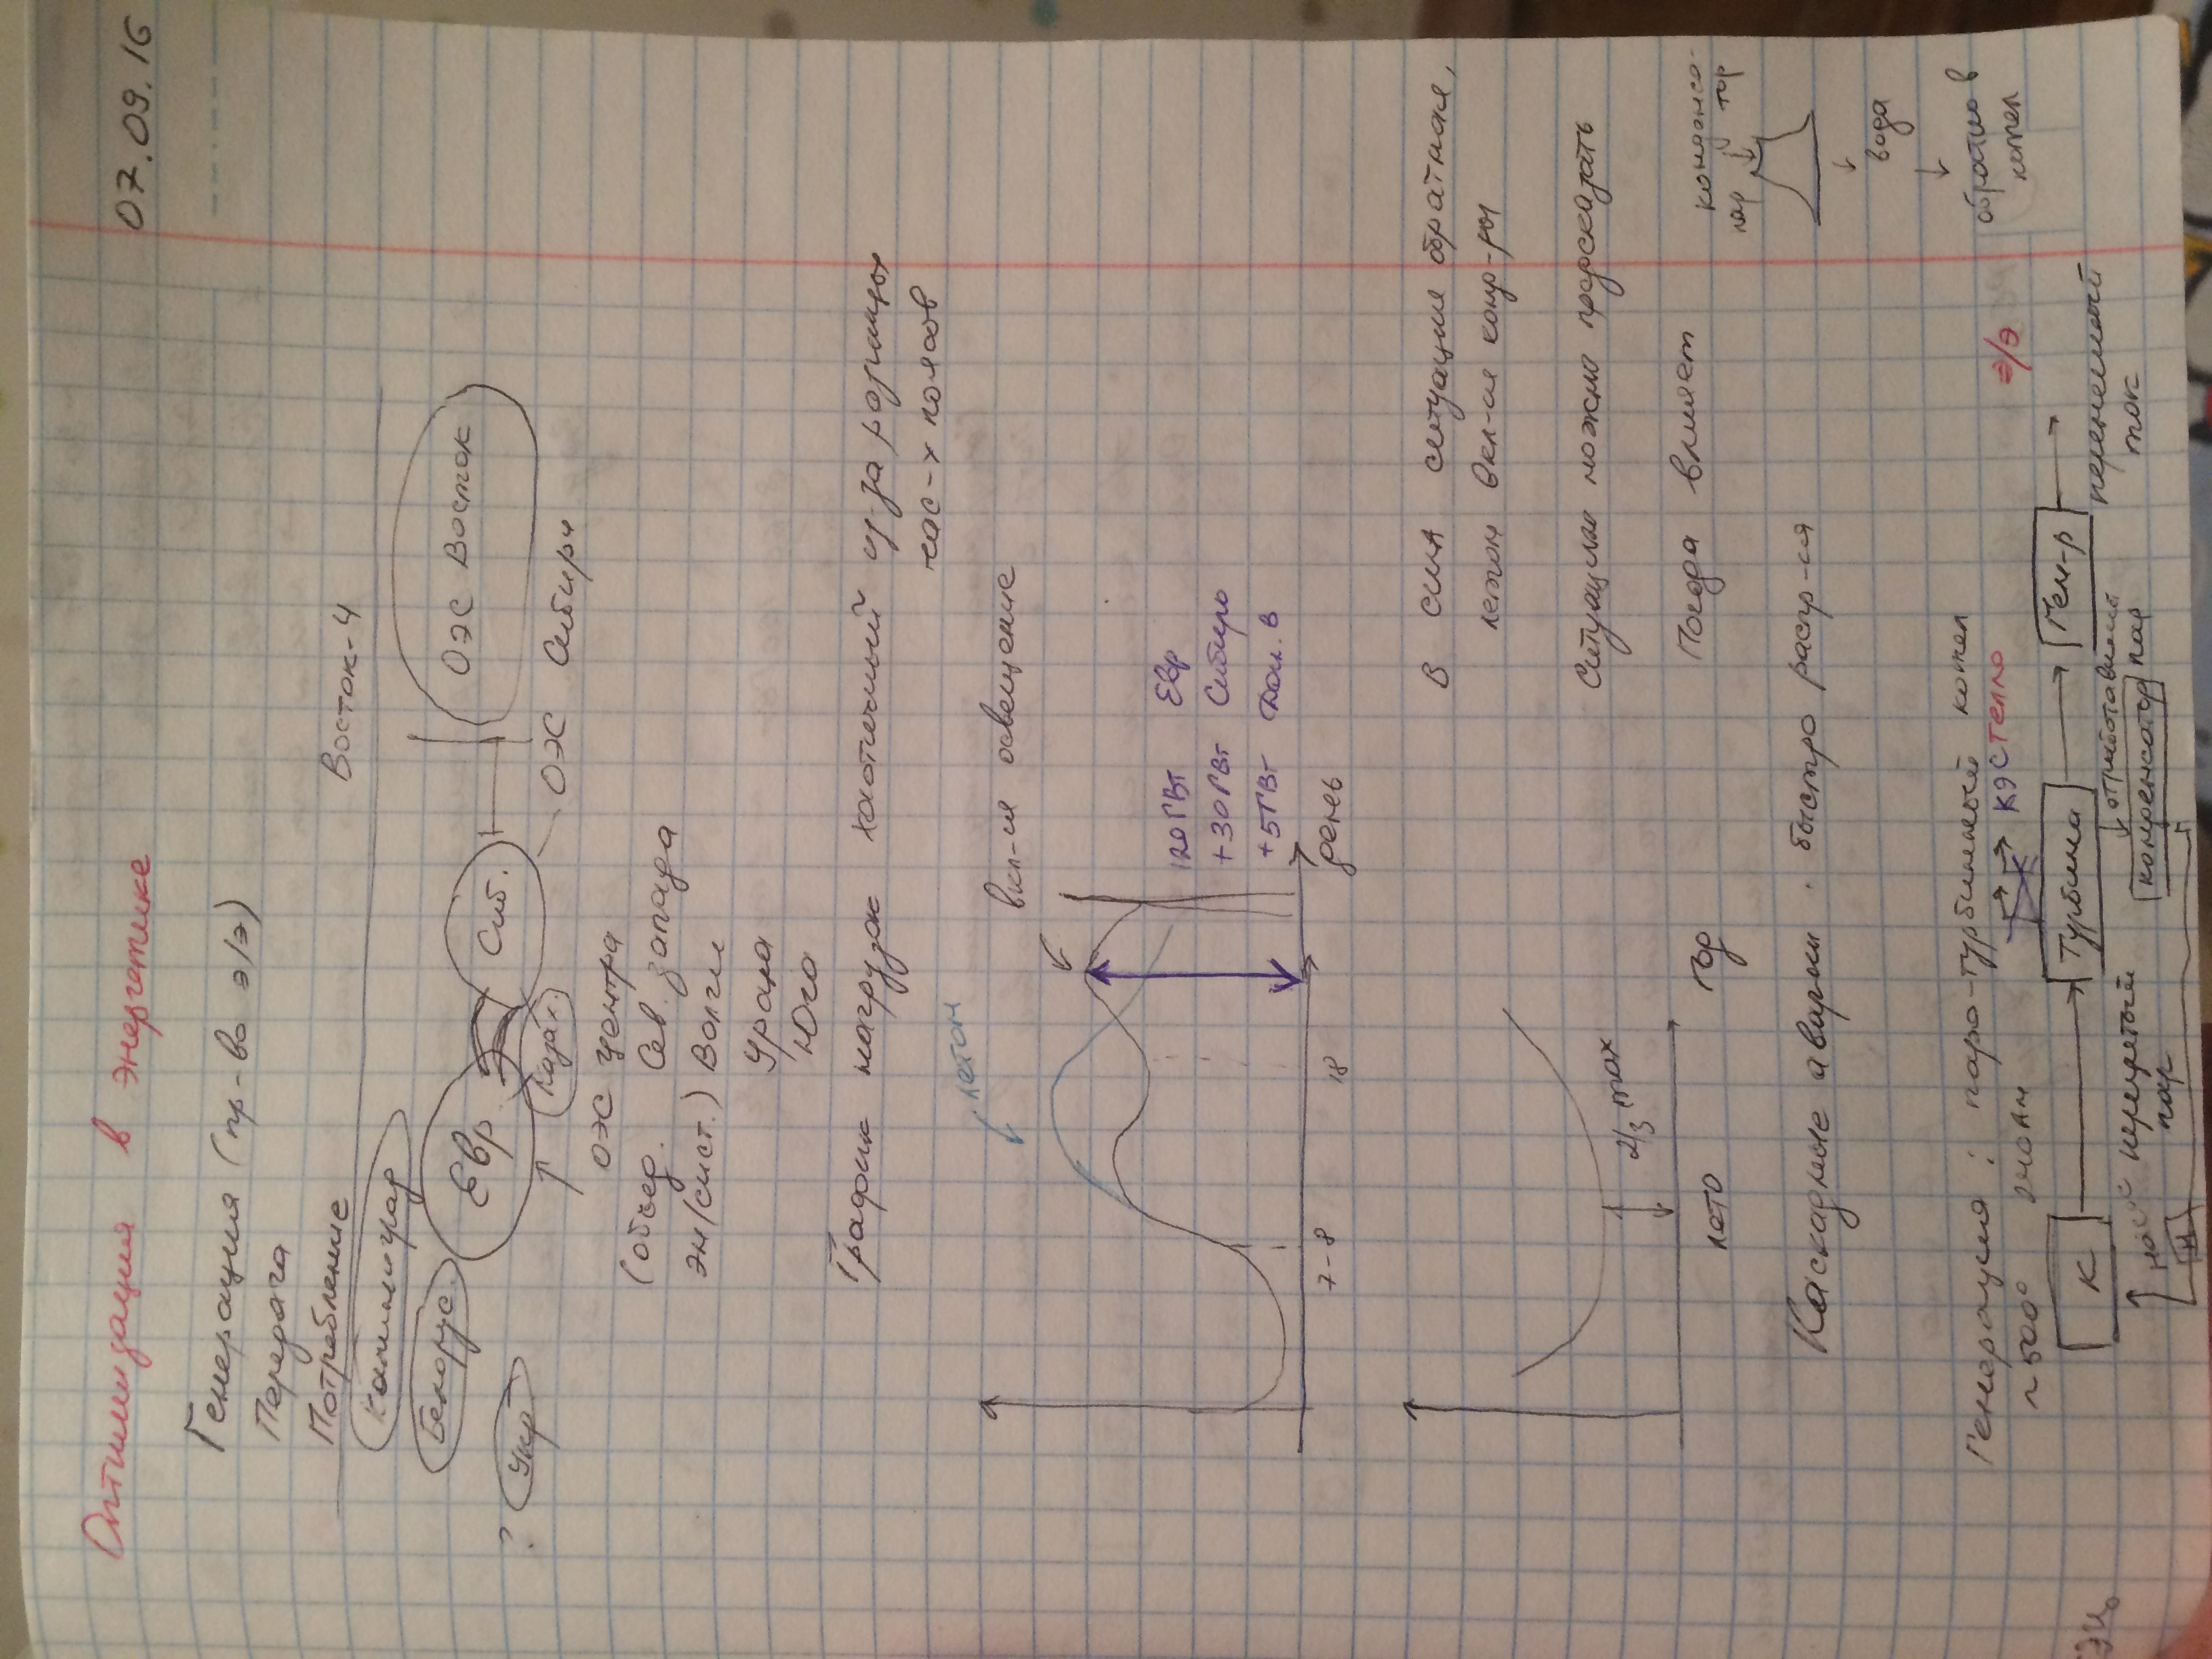 07.09.16
Оптимизация в энергетике
Генерация (пр-во э/э)
Передача
Потребление
Восток-4
Калининград
Белорус.
? Укр
Евр
Сиб.
Казах.
ОЭС Восток
ОЭС Сибири
ОЭС центра
(объед. Сев. запада
эн/сист.) Волги
Урала
Юга
График нагрузок хаотичный из-за разницы
час-х поясов
летом
вкл-ия освещение
120 ГВт Евр
+30 ГВт Сибирь
+5 ГВт Дал. В
7-8
18
день
В США ситуация обратная,
летом вкл-ся конд-ры
Ситуацию можно предсказать
2/3 max
лето
год
Погода влияет
Каскадные аварии. быстро распр-ся
конденса-
тор
пар
вода
обратно в
котел
Генерация: паро-турбинный котел
~500°
КЭС
тепло
э/э
К
Турбина
Ген-р
переменный
ток
перегретый
пар
отработавший
пар
конденсатор